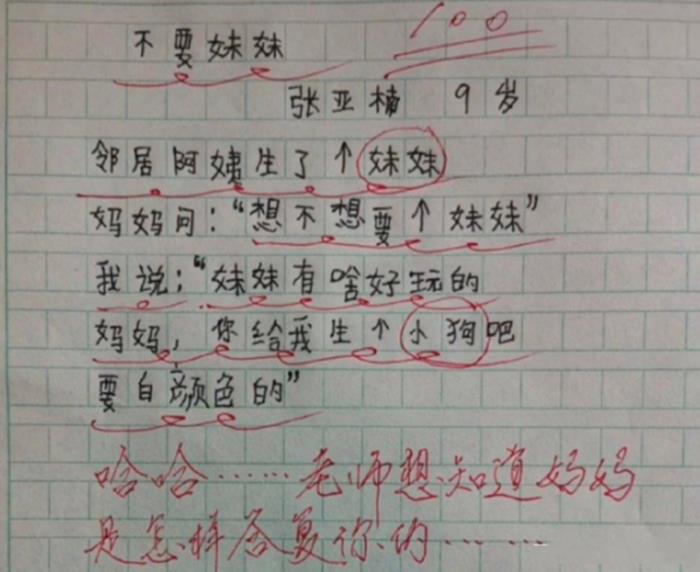 不要妹妹
100
张亚楠 9岁
邻居阿姨生了个妹妹
妈妈问:“想不想要个妹妹”
我说:“妹妹有啥好玩的
妈妈,你给我生个小狗吧
要白颜色的”
哈哈……老师想知道妈妈
是怎样答复你的……